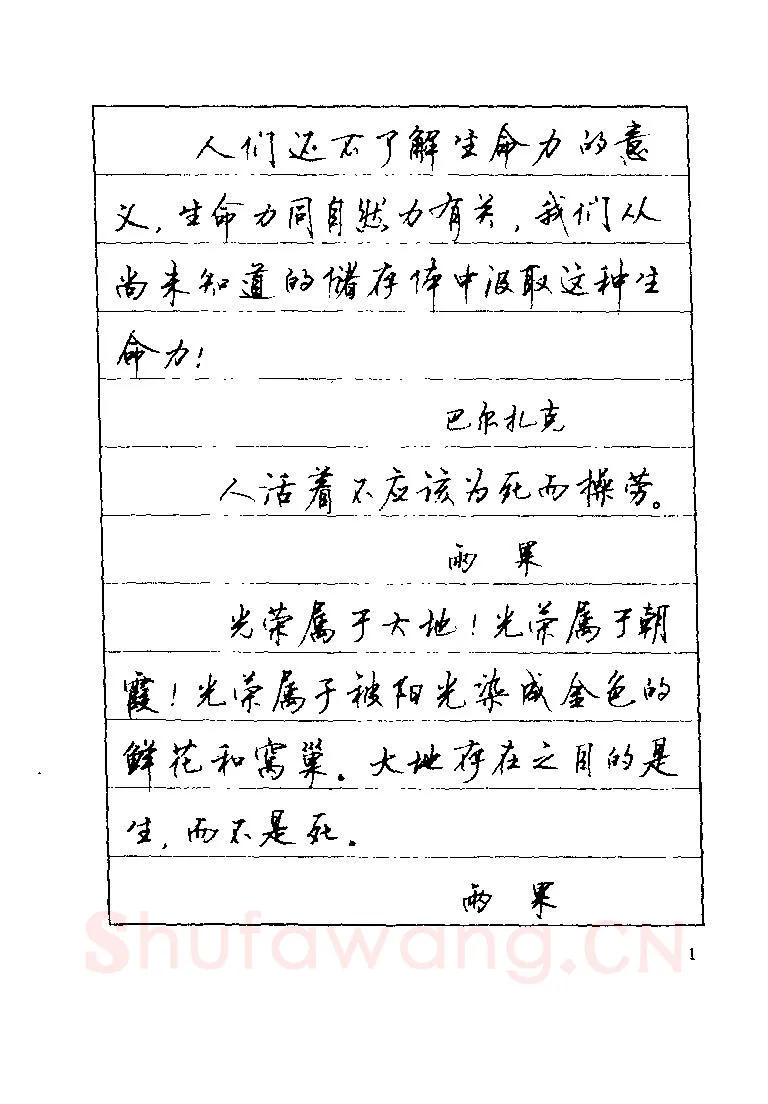 人们还不了解生命力的意
义,生命力同自然力有关,我们从
尚未知道的储存体中汲取这种生
命力!
巴尔扎克
人活着不应该为死而操劳。
雨果
光荣属于大地!光荣属于朝
霞!光荣属于被阳光染成金色的
鲜花和窝巢。大地存在之目的是
生,而不是死。
雨果
Shufawang.CN
1